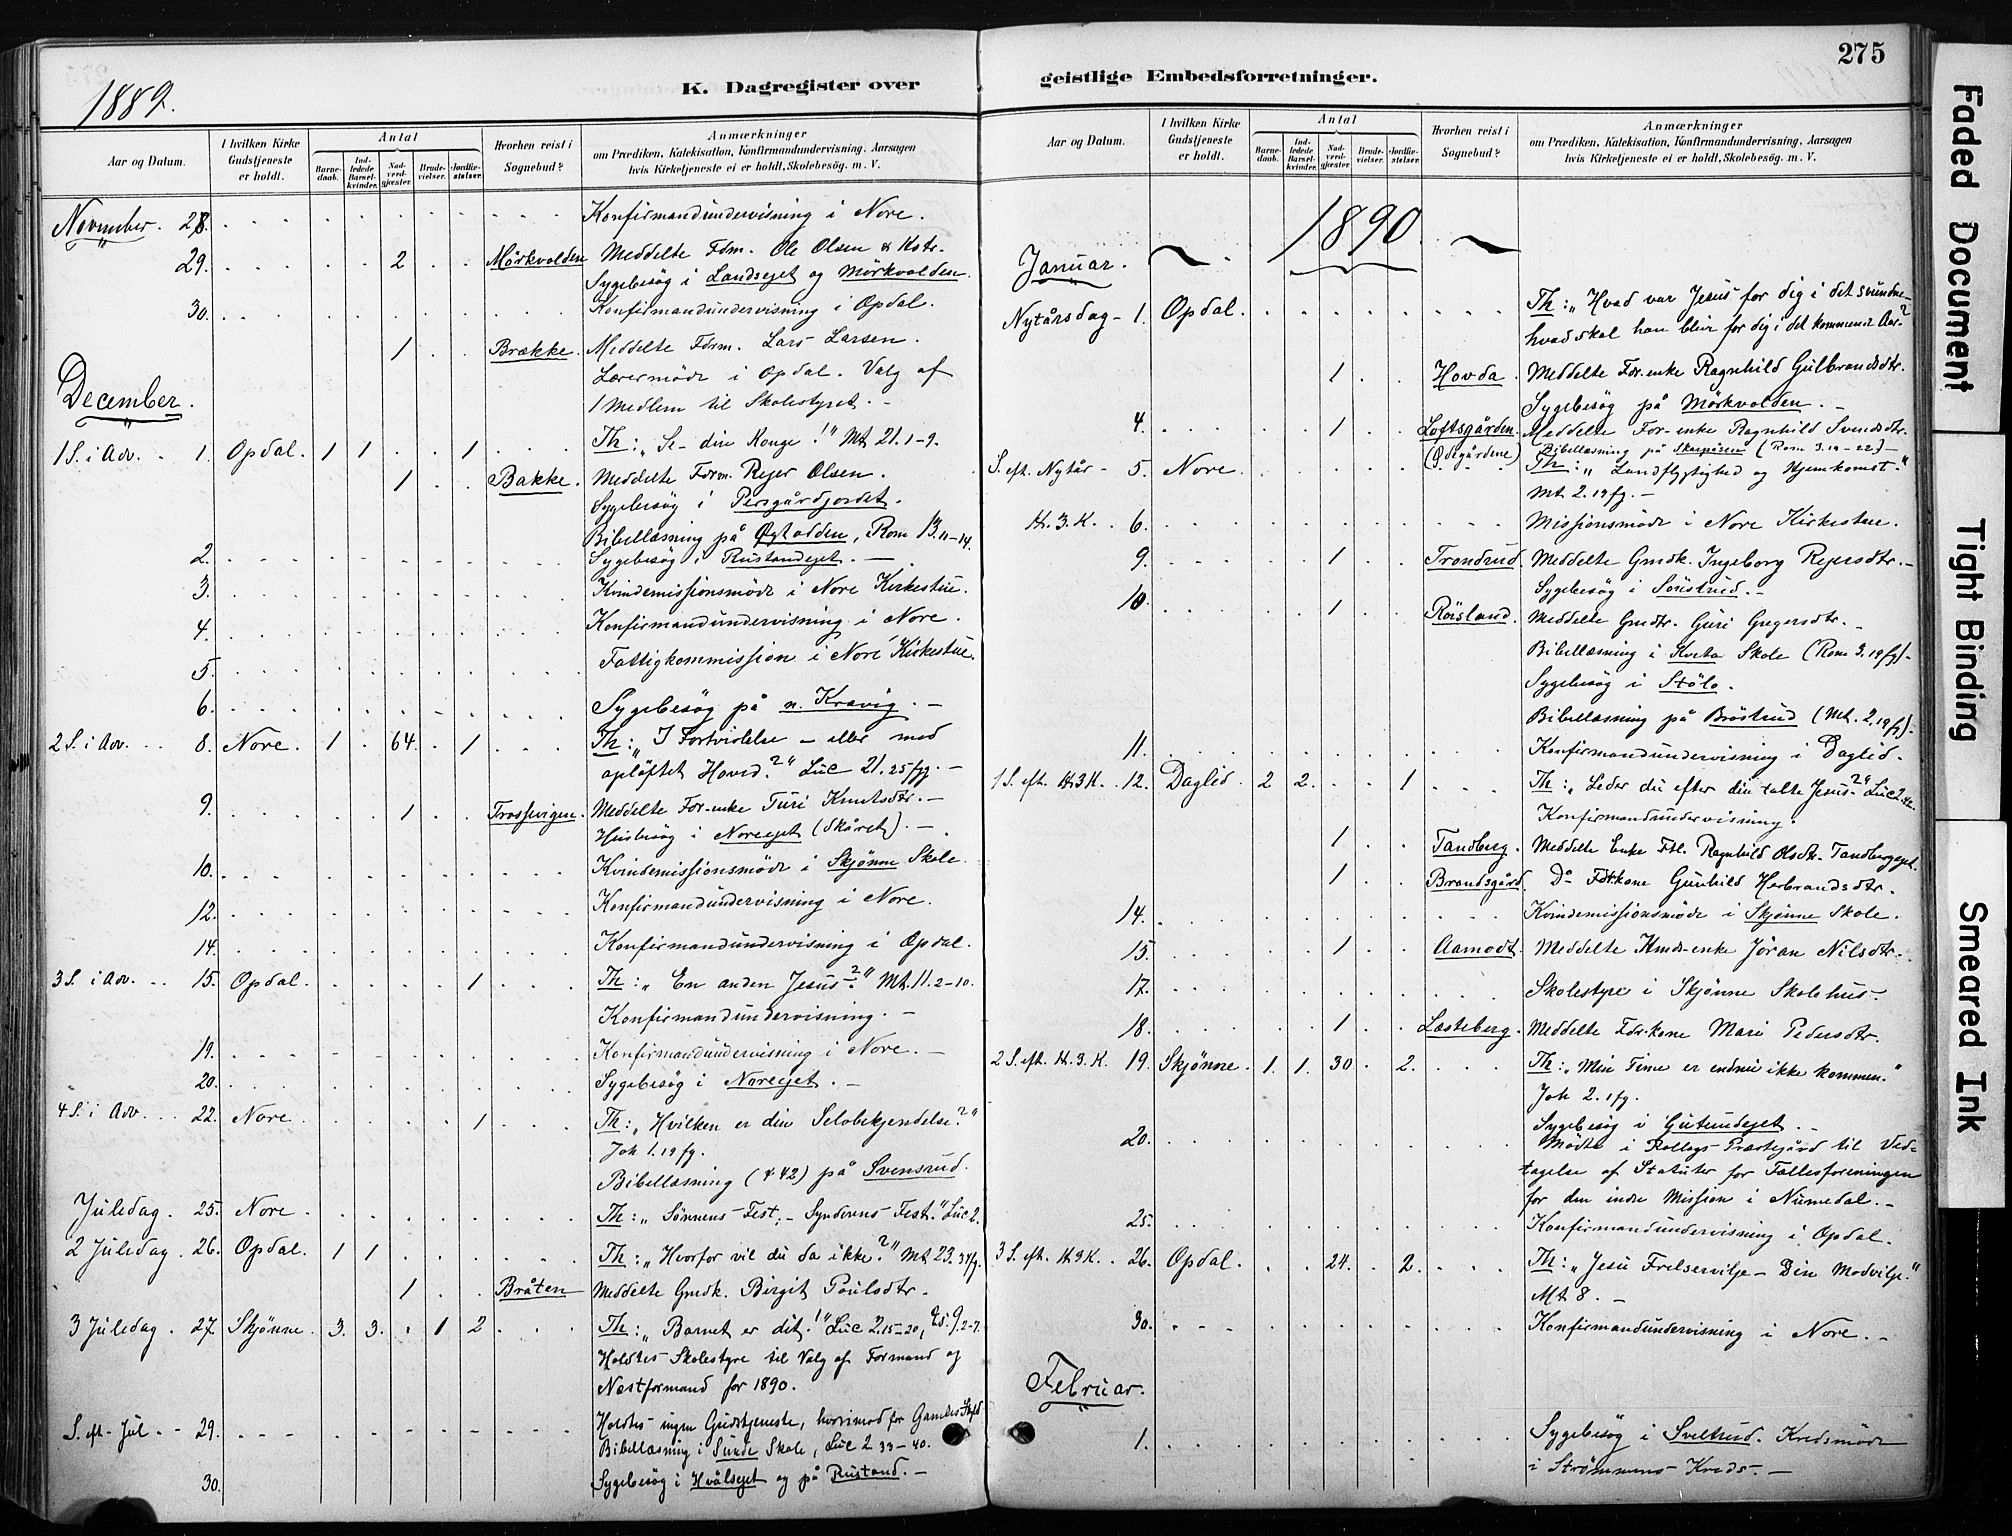 275
1889.
K. Dagregister over
geistlige Embedsforretninger.
Aar og Datum.
I hvilken Kirke Gudstjeneste er holdt.
Antal
Barnedaab.
Indledede Barselkvinder.
Nadverdgjester.
Brudevielser.
Jordfæstelser.
Hvorhen reist i Sognebud?
Anmærkninger
om Prædiken, Katekisation, Konfirmandundervisning, Aarsagen
hvis Kirketjeneste ei er holdt, Skolebesøg. m. V.
November. 28. Konfirmandundervisning i Nore.
29. 2 Mörkvolden Meddelte Fdm. Ole Olsen & Kstr.
Sygebesög i Landsejet og Mörkvolden.
30. Konfirmandundervisning i Opdal.
1 Brække. Meddelte Form. Lars Larsen.
Lærermöde i Opdal. Valg af
December. 1 Medlem til Skolestyret. -
1 S. i Adv. 1. Opdal. 1 1 1 Th: "Se din Konge!" Mt 21. 1-9.
1 Bakke. Meddelte Form. Rejer Olsen.
Sygebesög i Persgårdjordet.
Bibellæsning på, Rom 13. 11-14.
2. Sygebesög i Rustandejet. -
3. Kvindemissionsmöde i Nore Kirkestue.
4. Konfirmandundervisning i Nore.
5. Fattigkommission i Nore Kirkestue.
6. Sygebesög på n. Kravig. -
2 S. i Adv. 8. Nore. 1 64. 1 Th: "I Fortvivlelse - eller med
oplöftet Hoved?" Luc 21. 25 fg. -
9. 1 Trossevigen. Meddelte For-enke Turi Knutsdtr. -
Husbesög i Norejet (Skåret). -
10. Kvindemissionsmöde i Skjönne Skole.
12. Konfirmandundervisning i Nore.
14. Konfirmandundervisning i Opdal.
3 S. i Adv. 15. Opdal. 1 Th: "En anden Jesus?" Mt. 11. 2-10.
Konfirmandundervisning. -
19. Konfirmandundervisning i Nore. -
20. Sygebesög i Norejet. -
4 S. i Adv. 22. Nore. 1 Th: "Hvilken er din Selvbekjendelse?"
Joh 1. 19 fg.
Bibellæsning (+42) på Svensrud.
Juledag. 25. Nore. Th: "Sönnens Fest, - Synderens Fest." Luc 2.
2 Juledag. 26. Opdal. 1 1 Th: "Hvorfor vil du da ikke?" Mt 23. 34 fg.
1 Bråten Meddelte Gmdk. Birgit Poulsdtr.
3 Juledag. 27. Skjönne. 3. 3. 1 2 Th: "Barnet er dit!" Luc 2. 15-20, Es. 9. 2-7.
Holdtes Skolestyre til Valg af Formand og
Næstformand for 1890.
S. eft. Jul. 29. Holdtes ingen Gudstjeneste, hvorimod for Gamles Skyld
Bibellæsning i Sunde Skole, Luc 2 33-40.
30. Sygebesög i Hvålsejet og på Rustand. -
Aar og Datum.
I hvilken Kirke Gudstjeneste er holdt.
Antal
Barnedaab.
Indledede Barselkvinder.
Nadverdgjester.
Brudevielser.
Jordfæstelser.
Hvorhen reist i Sognebud?
Anmærkninger
om Prædiken, Katekisation, Konfirmandundervisning, Aarsagen
hvis Kirketjeneste ei er holdt, Skolebesøg. m. V.
1890.
Januar.
Nytårsdag - 1. Opdal. Th: "Hvad var Jesus for dig i det svundne -
hvad skal han blive for dig i det kommende Aar?"
1 Hovda. Meddelte For.enke Ragnhild Gulbrandsdtr.
Sygebesög på Mörkvolden. -
4. 1 Loftsgården. Meddelte For-enke Ragnhild Svendsdtr.
Bibellæsning på (Rom 3. 19-22) -
S. eft. Nytår - 5. Nore. Th: "Landflygtighed og Hjemkomst."
Mt 2. 19 fg. -
H. 3. K. 6. Missionsmöde i Nore Kirkestue.
9. 1 Trondrud. Meddelte Gmdk. Ingeborg Rejersdtr. -
Sygebesög i Sörstrud. -
10. 1 Röisland. Meddelte Gmdtr. Guri Gregersdtr. -
Bibellæsning i Kvita Skole (Rom 3. 19 fg) -
Sygebesög i Stölo.
Bibellæsning på Bröstrud (Mt. 2. 19 fg) -
11. Konfirmandundervisning i Daglid.
1 S. eft. H. 3 K. 12. Daglid. 2 2. 1 Th: "Leder du efter din tabte Jesus?" Luc 2. 42.
Konfirmandundervisning.
1 Tandberg. Meddelte Enke Ftl. Ragnhild Olsdtr. Tandbergejet.
1 Brandsgård. Do Fdrkone Gunhild Herbrandsdtr.
14. Kvindemissionsmöde i Skjönne Skole.
15. 1 Aamodt. Meddelte Hmds-enke Jöran Nilsdtr.
17. Skolestyre i Skjönne Skolehus.
18. 1 Læsteberg. Meddelte Fdr.kone Mari Pedersdtr.
2 S. eft. H. 3. K. 19. Skjönne. 1. 1. 30 2. Th: "Min Time er endnu ikke kommen."
Joh 2. 1 fg.
Sygebesög i Gutundejet.
20. Mödte i Rollags Præstegård til Vedtagelse
af Statuter for Fællesforeningen
for den indre Mission i Numedal. -
25. Konfirmandundervisning i Opdal.
3 S. eft. H. 3 K. 26. Opdal. 24. 2. Th: "Jesu Frelservilje - Din Modvilje."
Mt 8. -
30. Konfirmandundervisning i Nore. -
Februar.
1. Sygebesög i Sveltrud. Kredsmöde
i Strömmens Kreds. -
Faded Document
Tight Binding
Smeared Ink